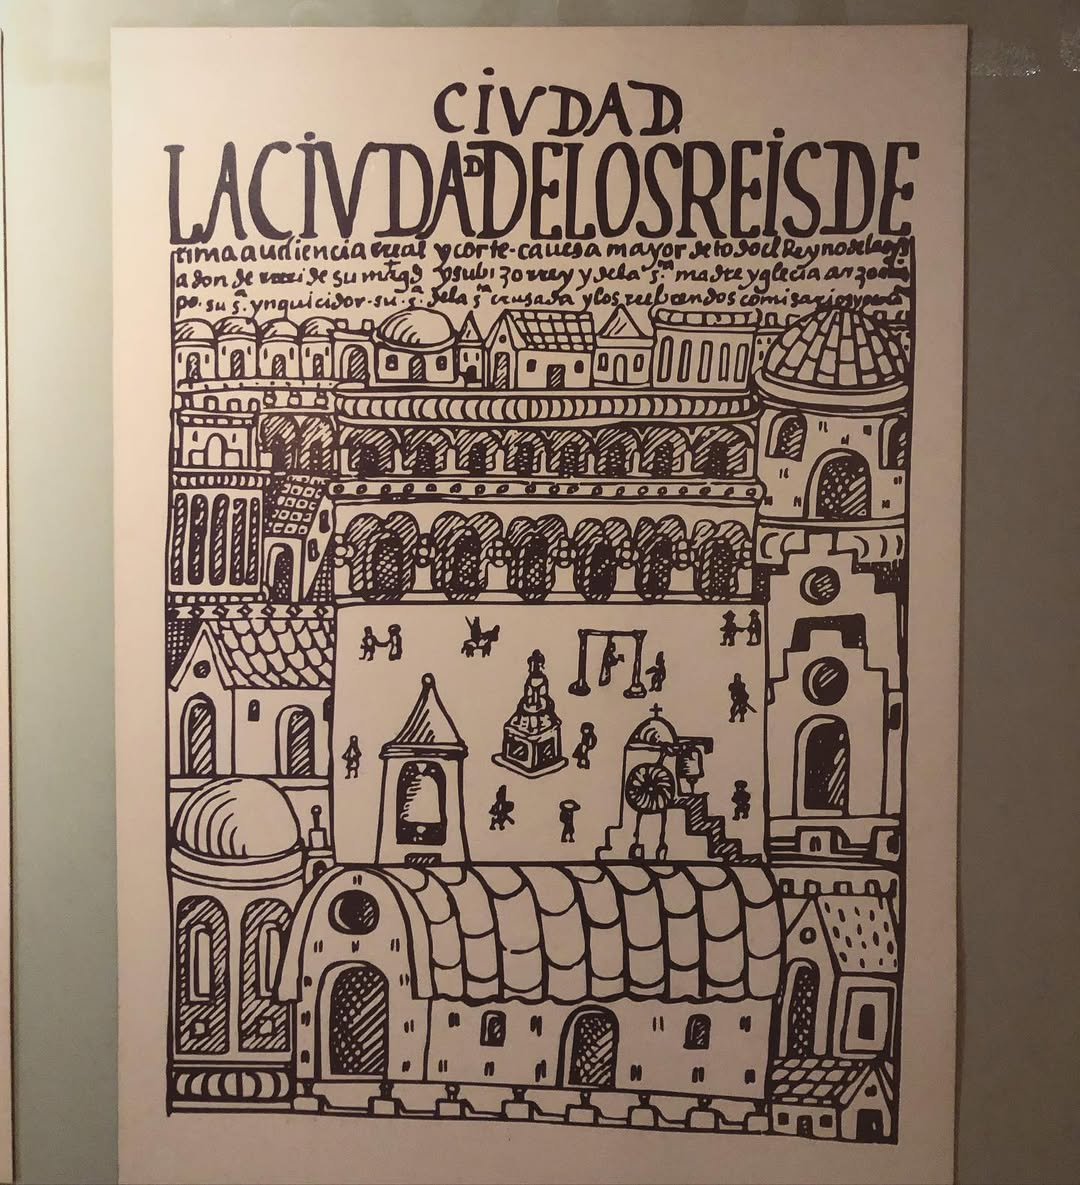 CiVDAD
LACiVDADDELOSREiSDE
tima audiencia rreal y corte-cauesa mayor de todo el Reyno de las
a don de rreci de su mag.d y su bizorrey y de la s.ta madre yglecia arzo
po. su s.a ynquicidor. su. s.a de la s.ta crusada y los rreberendos comisarios y